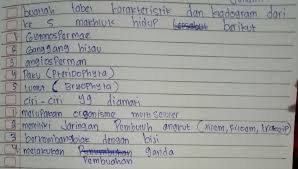 buatlah tabel karakteristik dan kladogram dari
ke 5 makhluk hidup tersebut berikut
1 Gymnospermae
2 Ganggang hijau
3 angiosperman
4 Paku (Pteridophyta)
5 Lumut (Bryophyta)
ciri-ciri yg diamati
1 merupakan organisme multi seluler
2 memiliki Jaringan Pembuluh angkut (xilem, Floem,
3 berkembangbiak dengan biji
4 melakukan Pembuahan ganda
Pembuahan